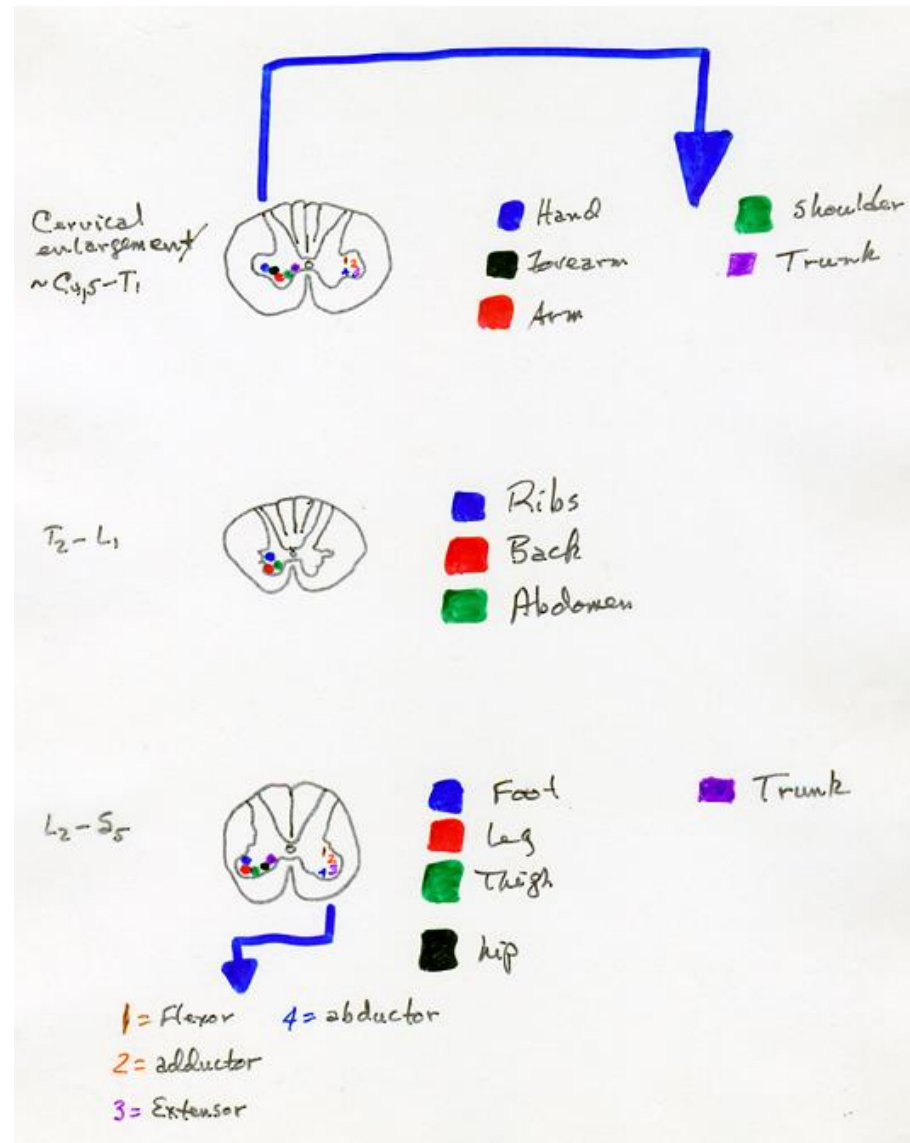 Cervical
enlargement
~C4,5-T1
Hand
Forearm
Arm
Shoulder
Trunk
1 2
4 3
T2-L1
Ribs
Back
Abdomen
L2-S5
1 2
4 3
Foot
Leg
Thigh
hip
Trunk
1= Flexor 4= abductor
2= adductor
3= Extensor